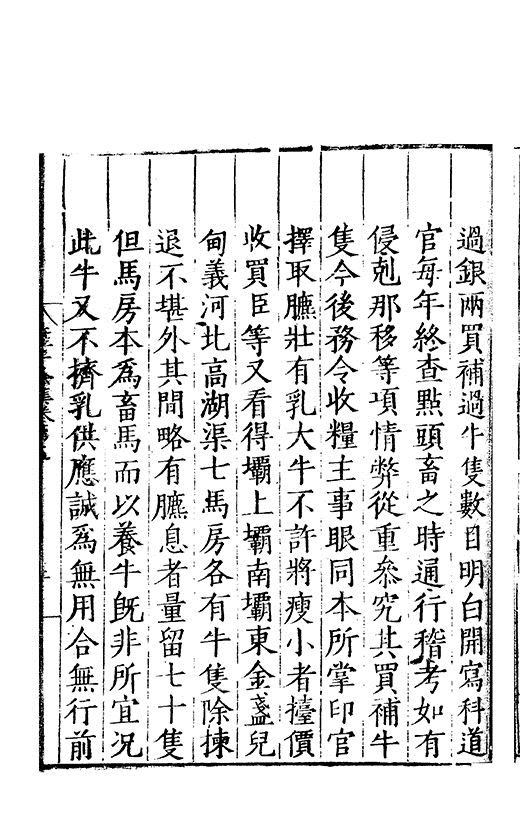 過銀兩買補過牛隻數目明白開寫科道
官每年終查點頭畜之時通行稽考如有
侵剋那移等項情弊從重叅究其買補牛
隻今後務令收糧主事眼同本所掌印官
擇取臕壯有乳大牛不許將瘦小者擡價
收買臣等又看得壩上壩南壩東金盞兒
甸義河北高湖渠七馬房各有牛隻除揀
退不堪外其間略有臕息者量留七十隻
但馬房本爲畜馬而以養牛旣非所宜况
此牛又不擠乳供應誠爲無用合無行前